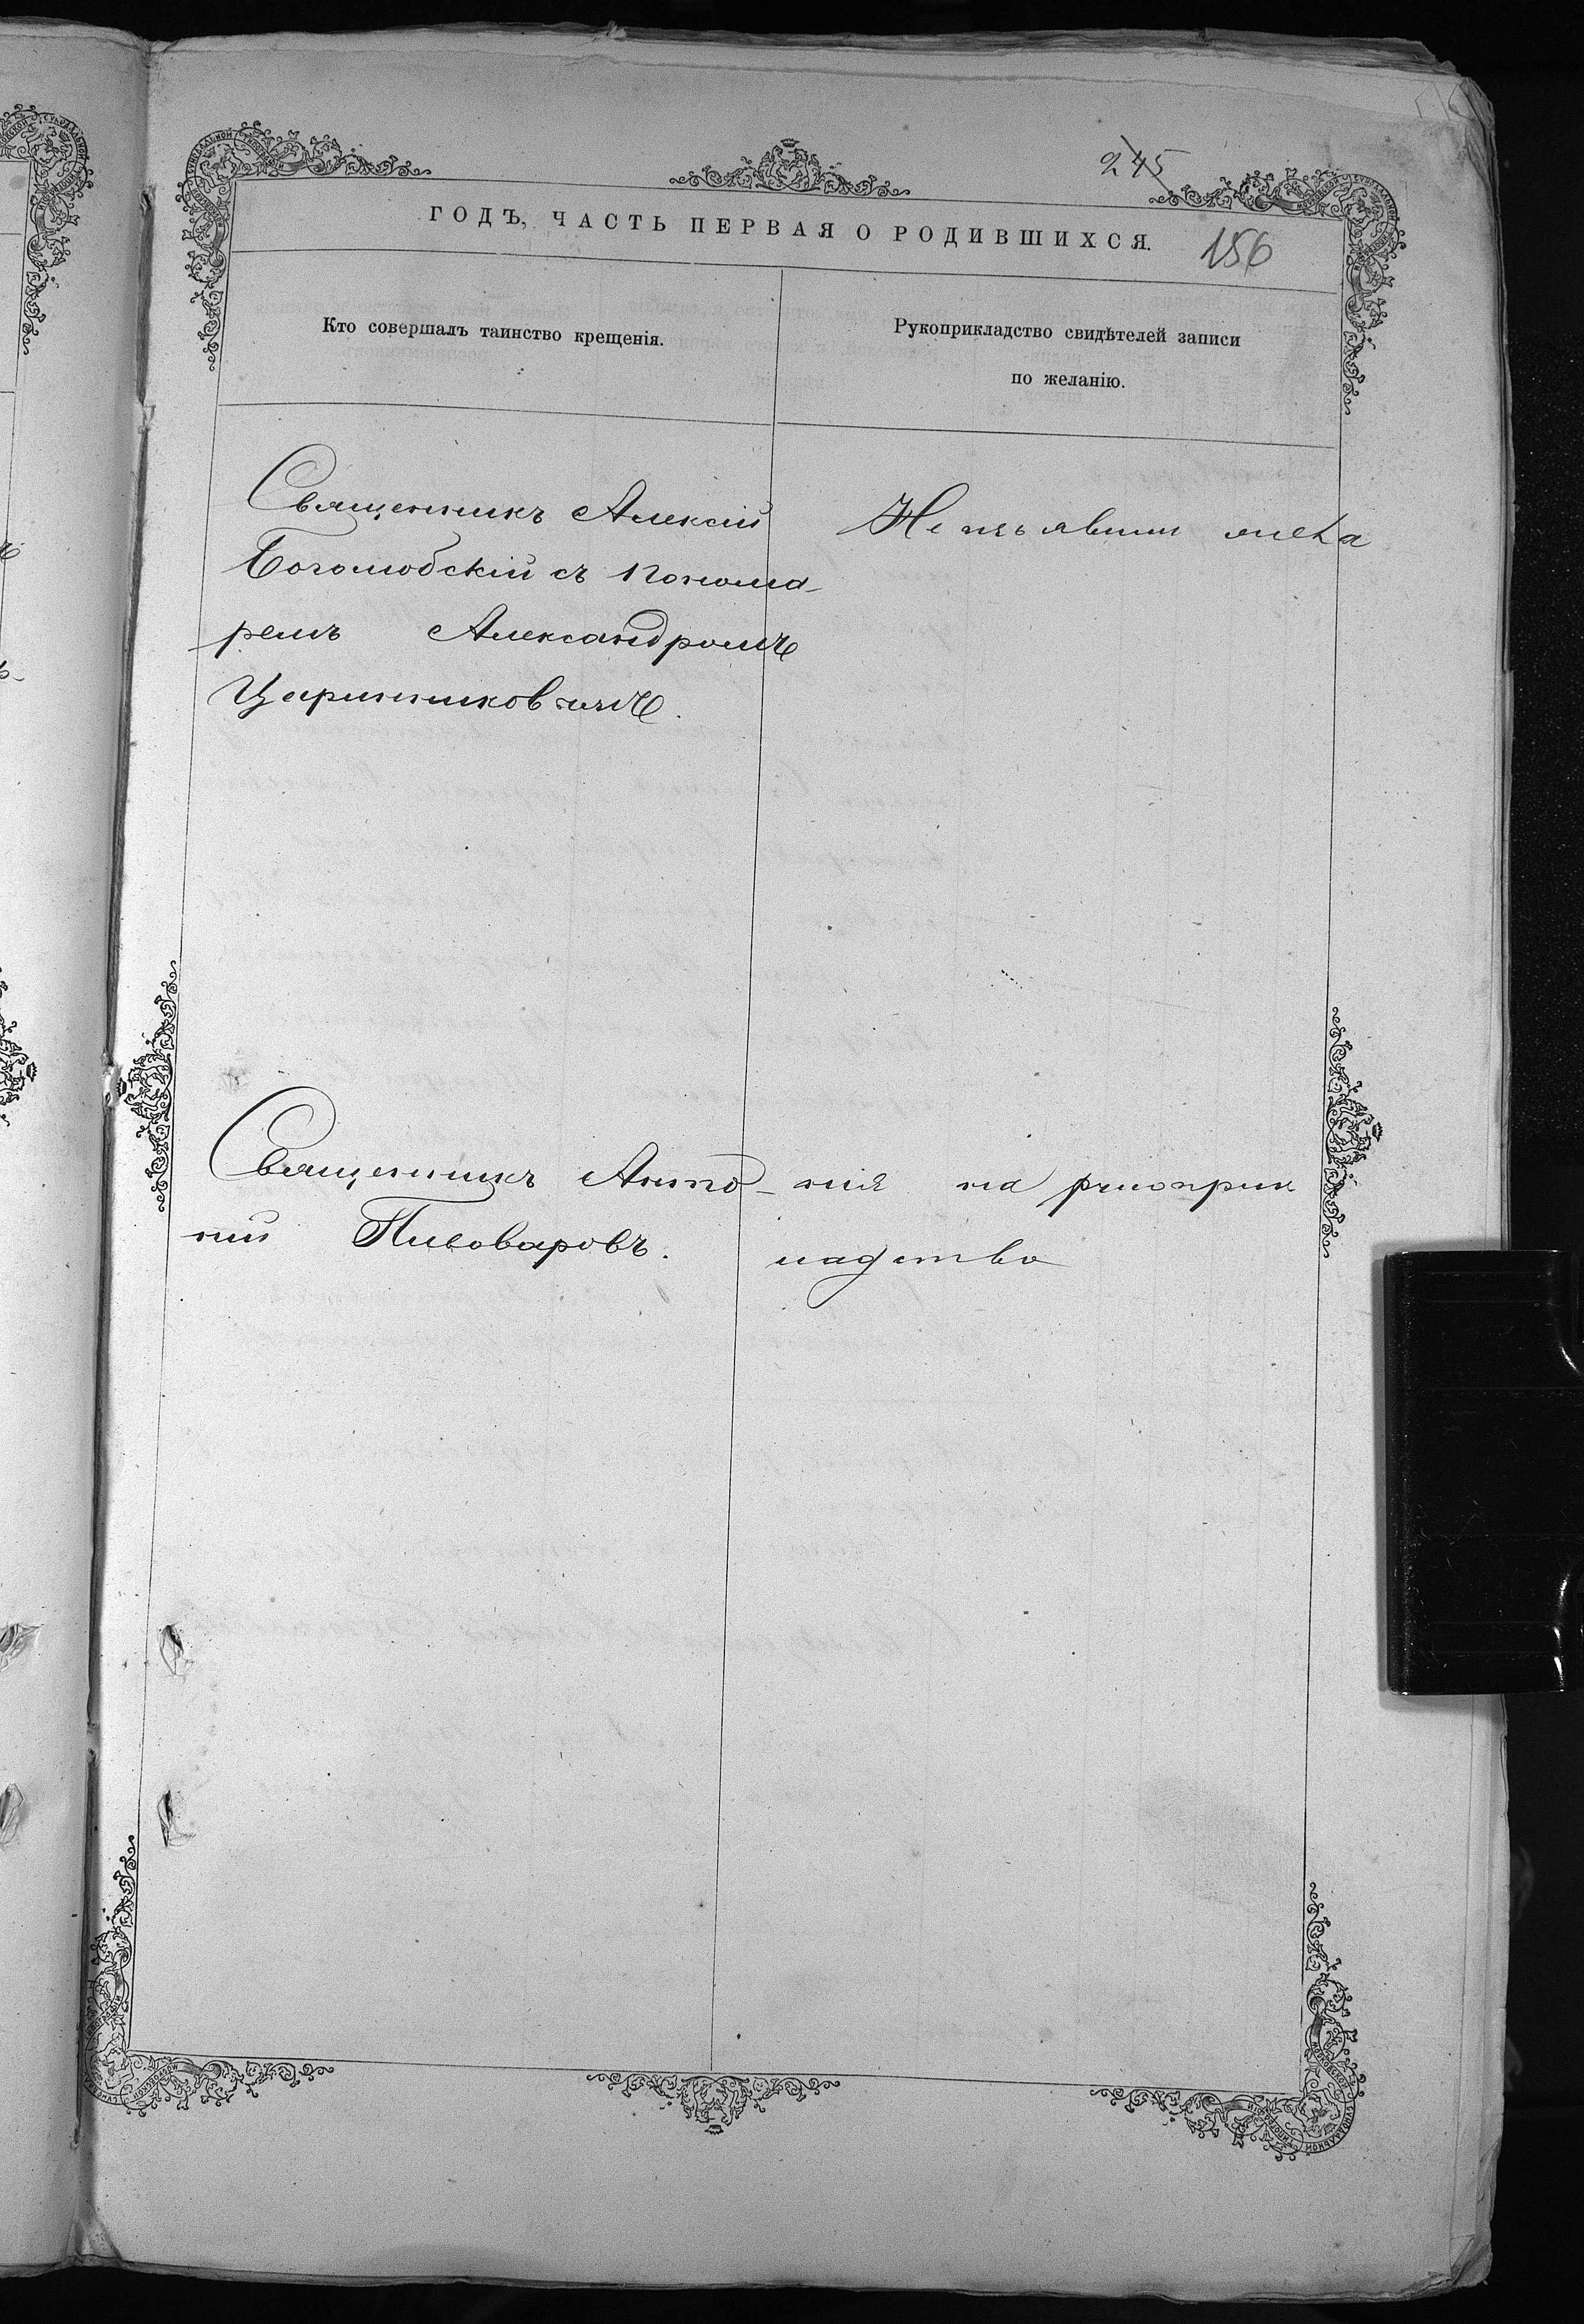 245
ГОДЪ, ЧАСТЬ ПЕРВАЯ О РОДИВШИХСЯ.
156
Кто совершалъ таинство крещенія.
Рукоприкладство свидѣтелей записи
по желанію.
Священникъ Алексій
Боголюбскій съ понома-
ремъ Александромъ
Царинниковымъ.
Не изъявили жела
Священникъ Анто-
ній Пивоваровъ.
нія на рукоприк
ладство